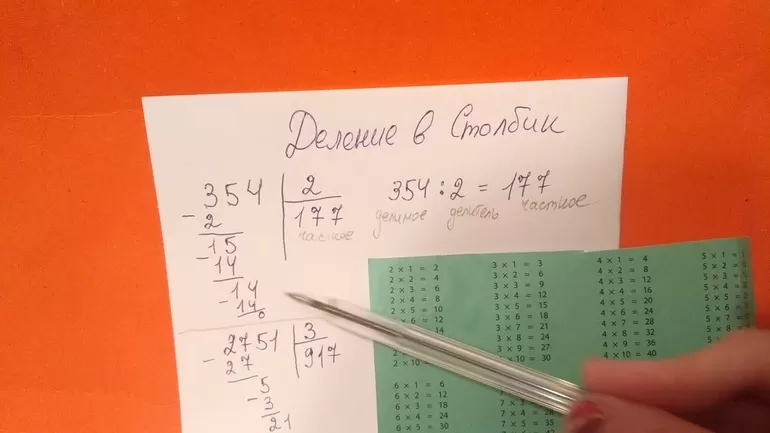 Деление в Столбик
354 | 2
354 : 2 = 177
- 2
177
частное
делимое делитель частное
15
- 14
14
- 14
0
2751 | 3
- 27
917
5
- 3
21
2 × 1 = 2
2 × 2 = 4
2 × 3 = 6
2 × 4 = 8
2 × 5 = 10
× 6 = 12
14
2 × 10
3 × 1 = 3
3 × 2 = 6
3 × 3 = 9
3 × 4 = 12
3 × 5 = 15
3 × 6 = 18
3 × 7 = 21
3 × 8 = 24
3 × 9 = 27
× 10 = 30
4 × 1 = 4
4 × 2 = 8
4 × 3 = 12
4 × 4 = 16
4 × 5 = 20
4 × 6 = 24
4 × 7 = 28
4 × 8 = 32
4 × 9 = 36
4 × 10 = 40
5 × 1 =
5 × 2 =
5 × 3 =
5 × 4 =
5 × 5 =
5 × 6
5 × 7
6 × 1 = 6
6 × 2 = 12
6 × 3 = 18
6 × 4 = 24
6 × 5 = 30
7 × 3
7 × 4 = 28
7 × 5 = 35